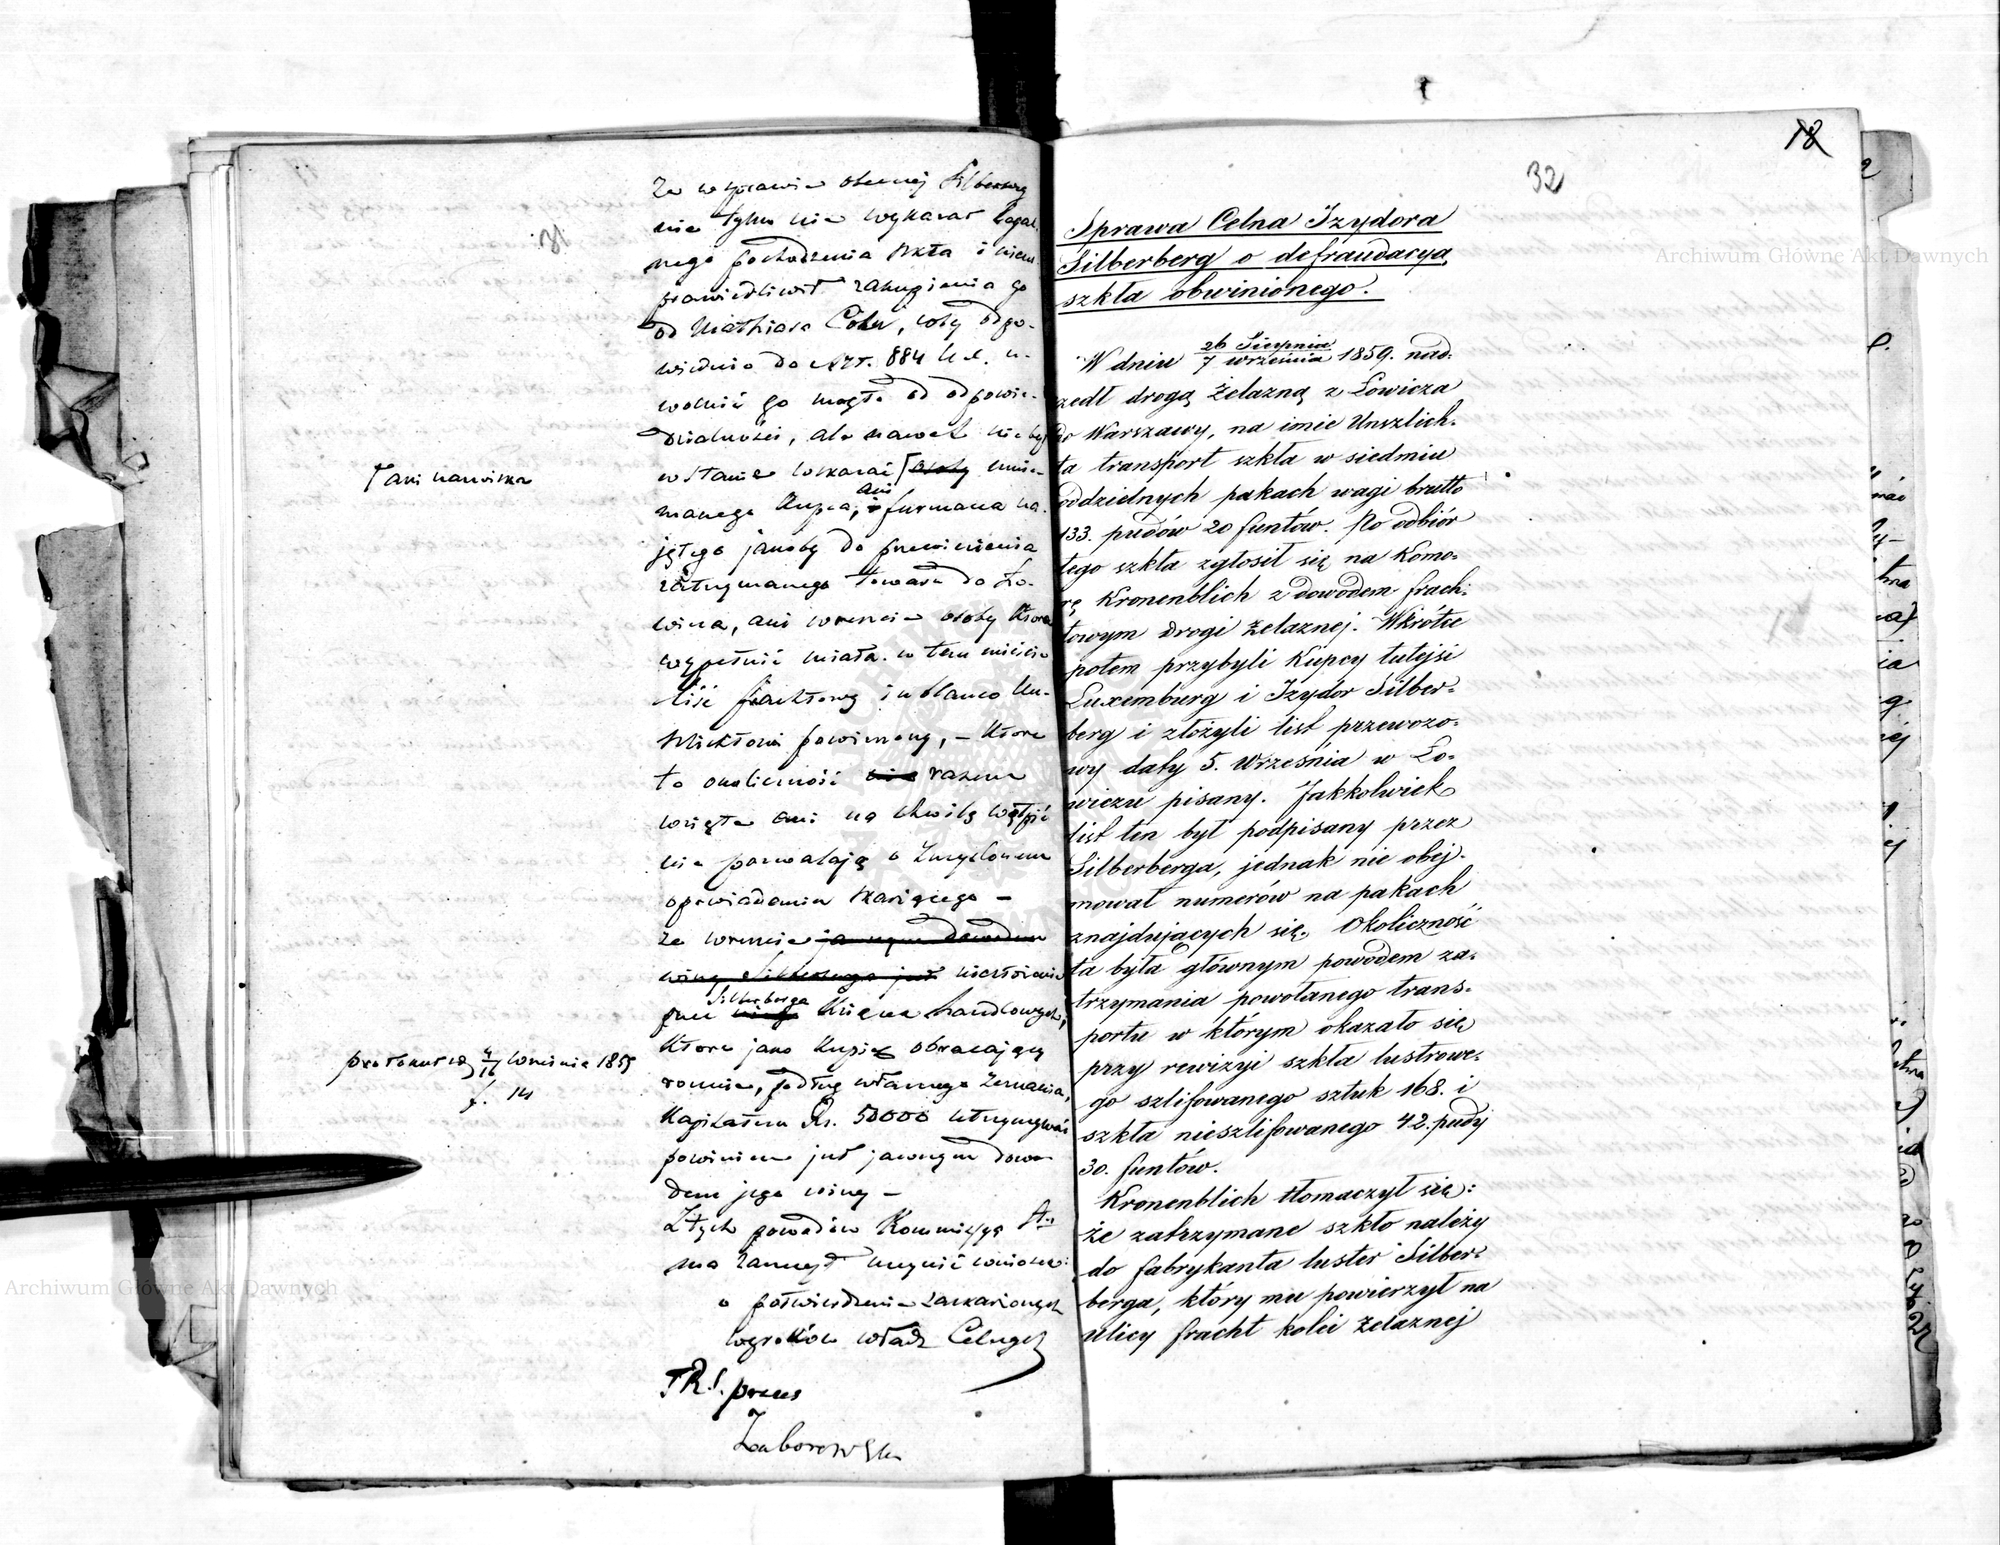 Że w sprawie obecnej Silberberg
nie tylko nie wykazał legal-
nego pochodzenia szkła i nieu-
sprawiedliwił zakupienia go
od Mathiasa Cohn, coby odpo-
wiednio do Art. 884 U.C. u-
wolnić go mogło od odpowie-
dzialności, ale nawet nie był
w stanie wskazać [ osoby mnie-
manego Kupca, ani furmana na-
jętego jakoby do przewiezienia
zatrzymanego towaru do Ło-
wicza, ani wreszcie osoby która
wypełnić miała w tem mieście
liść frachtowy in blanco Un-
szlichtowi powierzony, – które
to okoliczności razem
wzięte ani na chwilę wątpić
nie pozwalają o zmyślonem
opowiadaniu skarżącego –
Że wreszcie jawnym dowodem
winy Silberberga jest nieutrzymanie
przez Silberberga Księg handlowych,
które jako Kupiec obracający
rocznie, podług własnego zeznania,
Kapitałem Rs. 50000 utrzymywać
powinien jest jawnym dowo-
dem jego winy –
Z tych powodów Kommissya
ma zaszczyt uczynić wniosek:
o potwierdzenie zaskarżonych
wyroków władz Celnych
T.R.S. prezes
Zaborowski
[ ani nazwiska
protokuł z 4/16 Września 1859
f. 14
31
18
32
Sprawa Celna Izydora
Silberberg o defraudacyą
szkła obwinionego.
W dniu 26 Sierpnia/7 września 1859. nad-
szedł drogą Żelazną z Łowicza
do Warszawy, na imie Unszlich-
ta transport szkła w siedmiu
oddzielnych pakach wagi brutto
133. pudów 20 funtów. Po odbiór
tego szkła zgłosił się na Komo-
rę Kronenblich z dowodem frach-
towym drogi Żelaznej. Wkrótce
potem przybyli Kupcy tutejsi
Luxemburg i Izydor Silber-
berg i złożyli list przewozo-
wy daty 5. Września w Ło-
wiczu pisany. Jakkolwiek
list ten był podpisany przez
Silberberga, jednak nie obej-
mował numerów na pakach
znajdujących się. Okoliczność
ta była głównym powodem za-
trzymania powołanego trans-
portu w którym okazało się
przy rewizyi szkła lustrowe-
go szlifowanego sztuk 168. i
szkła nieszlifowanego 42. pudy
30. funtów.
Kronenblich tłomaczył się:
że zatrzymane szkło należy
do fabrykanta luster Silber-
berga, który mu powierzył na
ulicy fracht kolei żelaznej
Archiwum Główne Akt Dawnych
Archiwum Główne Akt Dawnych